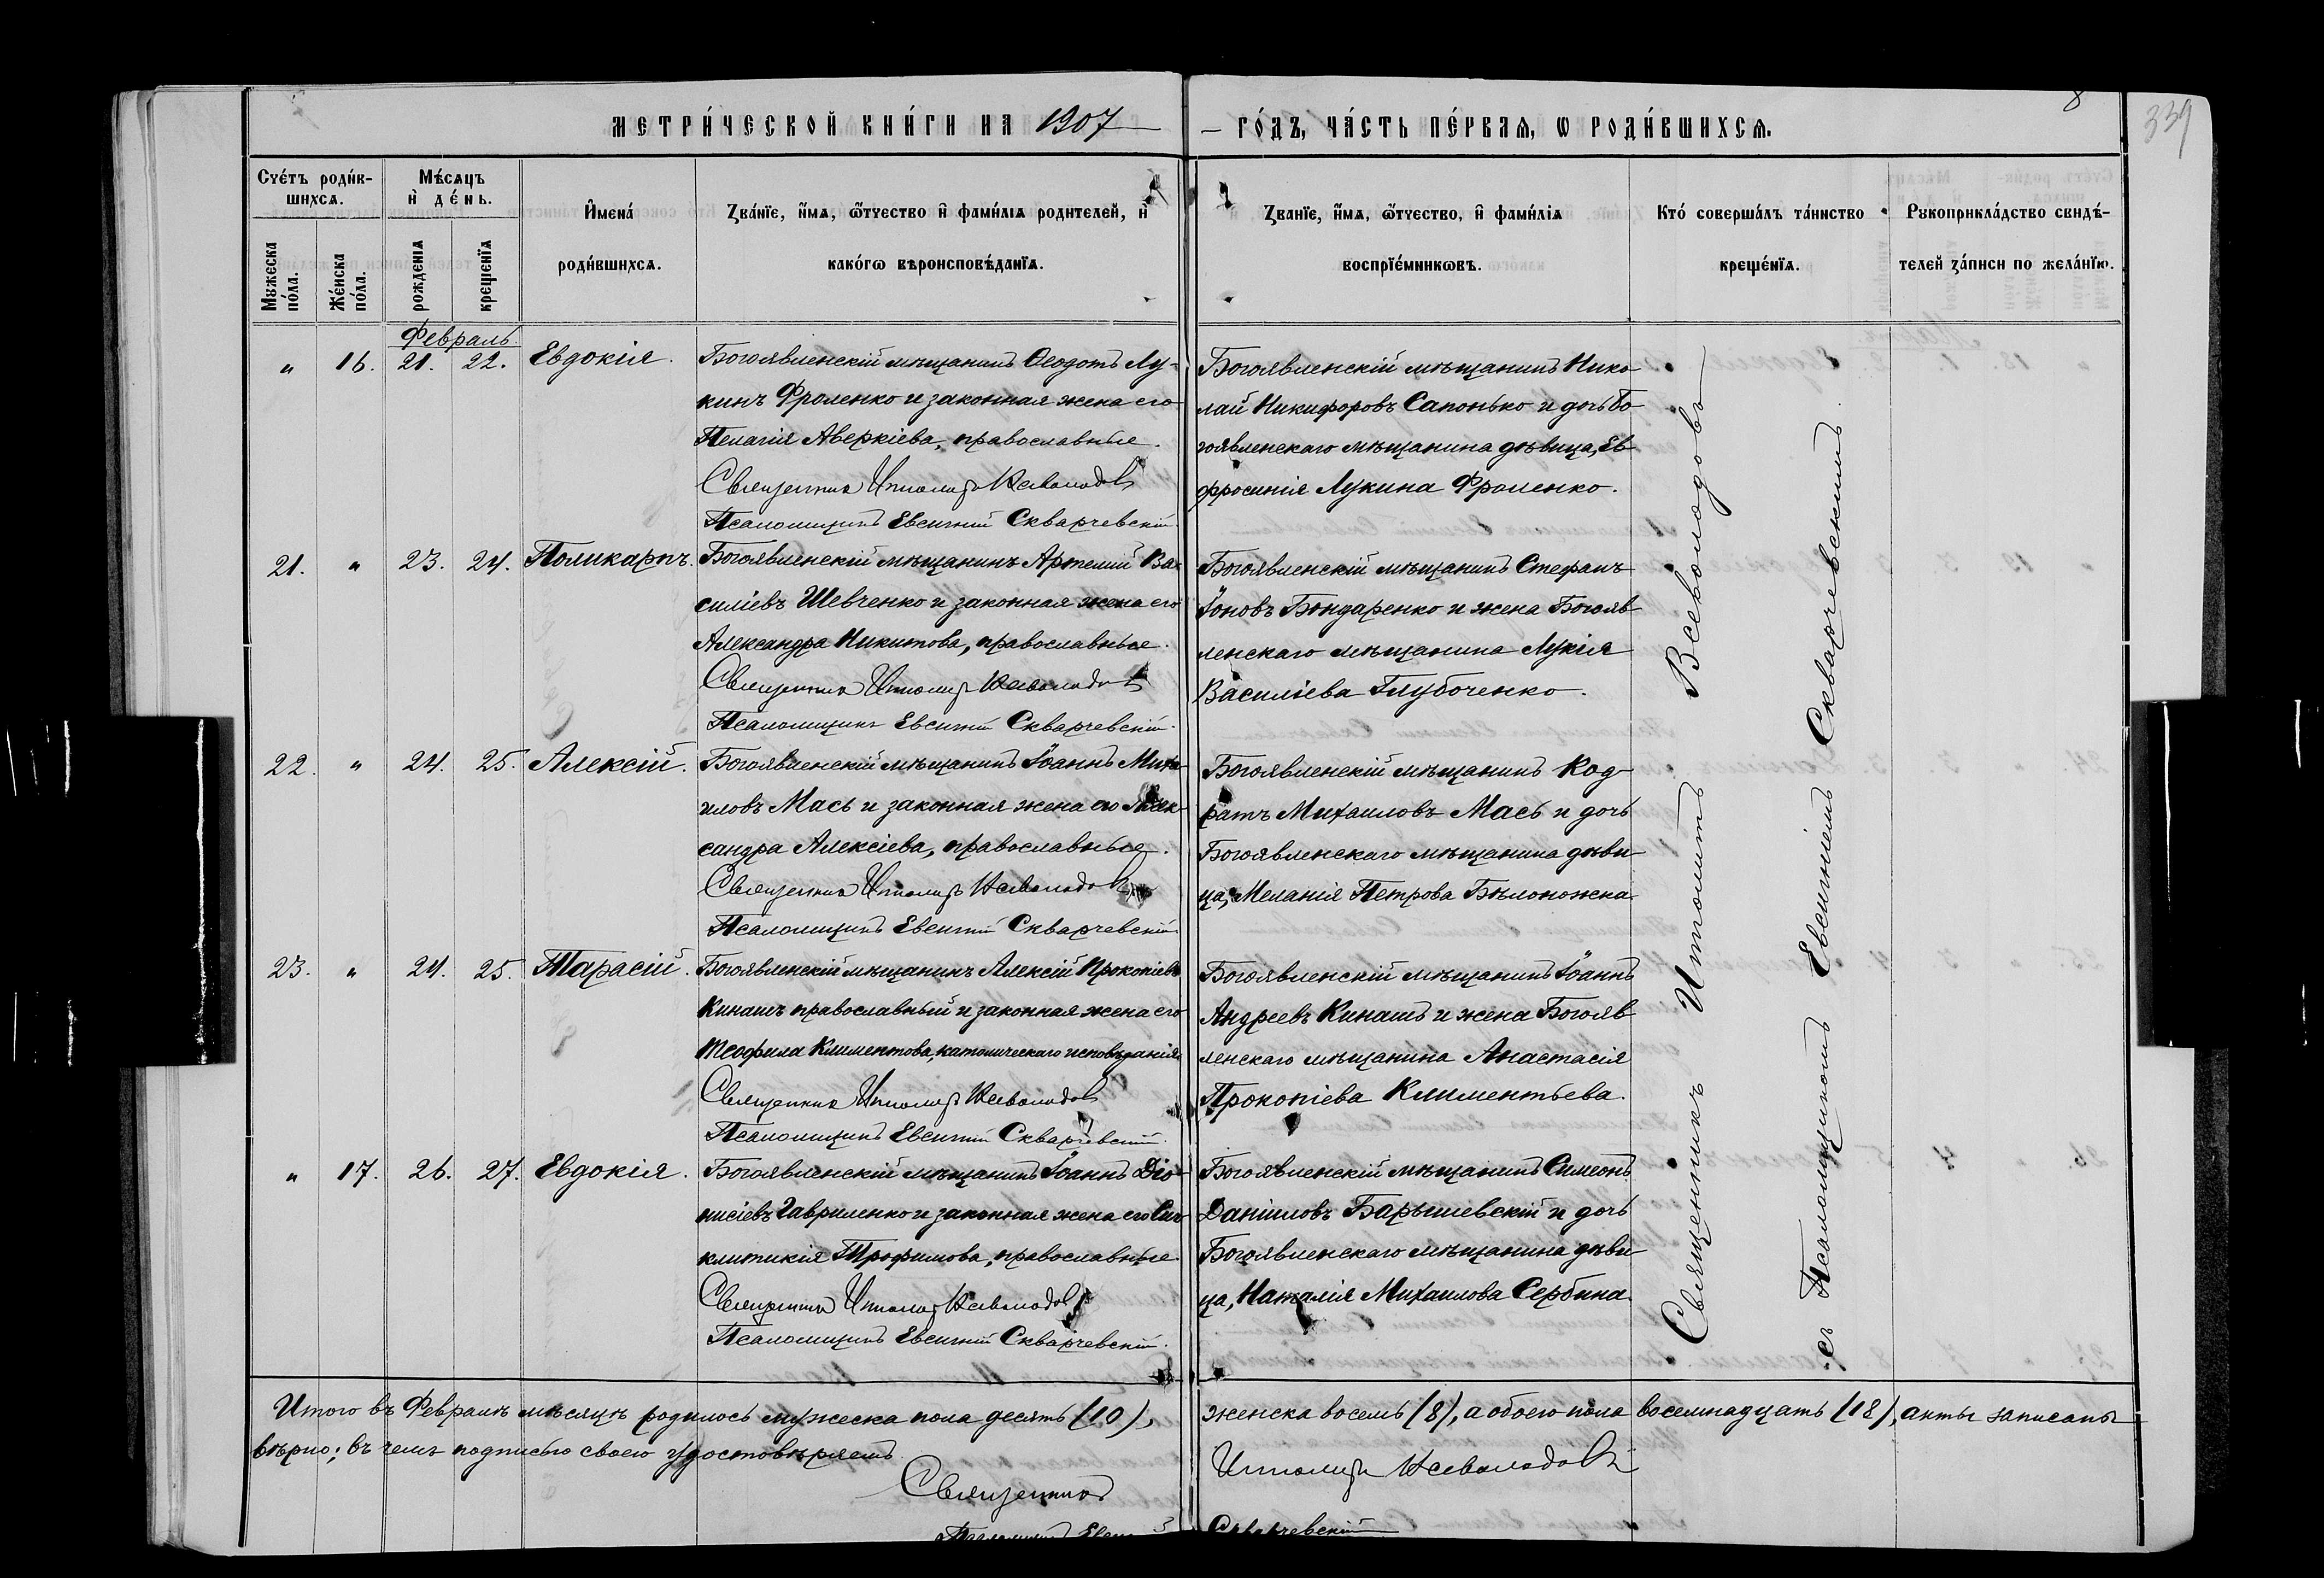 МЕТРИ́ЧЕСКОЙ КНИ́ГИ НА 1907
ГО́ДЪ, ЧА́СТЬ ПЕ́РВАѦ, Ѡ РОДИ́ВШИХСѦ.
8
339
Счéтъ роди́вшихсѧ.
Мужеска по́ла.
Же́нска по́ла.
Мѣ́сѧцъ и де́нь.
рожденїѧ
крещенїѧ
И҆мена́ роди́вшихсѧ.
Зва́нїе, и҆́мѧ, ѻ҆́тчество и҆ фами́лїѧ родителей, и҆
како́гѡ вѣроисповѣ́данїѧ.
Зва́нїе, и҆́мѧ, ѻ҆́тчество, и҆ фами́лїѧ
воспрїе́мникѡвъ.
Кто́ соверша́лъ та́инство
креще́нїѧ.
Рукоприкла́дство свидѣ́-
телей за́писи по жела́нїю.
Февраль
" 16. 21. 22. Евдокія.
Богоявленскій мѣщанинъ Ѳеодотъ Лу-
кинъ Фроленко и законная жена его
Пелагія Аверкіева, православные.
Священникъ Ипполитъ Всеволодовъ
Псаломщикъ Евсигній Скварчевскій.
Богоявленскій мѣщанинъ Нико-
лай Никифоровъ Сапонько и дочь Бо
гоявленскаго мѣщанина дѣвица, Ев-
фросинія Лукина Фроленко.
21. " 23. 24. Поликарпъ.
Богоявленскій мѣщанинъ Артемій Ва-
силіевъ Шевченко и законная жена его
Александра Никитова, православные.
Священникъ Ипполитъ Всеволодовъ
Псаломщикъ Евсигній Скварчевскій.
Богоявленскій мѣщанинъ Стефанъ
Іоновъ Бондаренко и жена Богояв-
ленскаго мѣщанина Лукія
Василіева Глубоченко.
22. " 24. 25. Алексій.
Богоявленскій мѣщанинъ Іоаннъ Миха-
иловъ Мась и законная жена его Алек-
сандра Алексіева, православные.
Священникъ Ипполитъ Всеволодовъ
Псаломщикъ Евсигній Скварчевскій
Богоявленскій мѣщанинъ Код-
ратъ Михаиловъ Мась и дочь
Богоявленскаго мѣщанина дѣви-
ца, Меланія Петрова Бѣлоножка.
23. " 24. 25. Тарасій.
Богоявленскій мѣщанинъ Алексій Прокопіевъ
Кинашъ православный и законная жена его
Теофила Климентова, католическаго исповѣданія
Священникъ Ипполитъ Всеволодовъ
Псаломщикъ Евсигній Скварчевскій.
Богоявленскій мѣщанинъ Іоаннъ
Андреевъ Кинашъ и жена Богояв-
ленскаго мѣщанина Анастасія
Прокопіева Климентьева.
" 17. 26. 27. Евдокія.
Богоявленскій мѣщанинъ Іоаннъ Діо-
нисіевъ Гавриленко и законная жена его Син-
клитикія Трофимова, православные.
Священникъ Ипполитъ Всеволодовъ
Псаломщикъ Евсигній Скварчевскій.
Богоявленскій мѣщанинъ Симеонъ
Даніиловъ Барышевскій и дочь
Богоявленскаго мѣщанина дѣви-
ца, Наталія Михаилова Сербина.
Священникъ Ипполитъ Всеволодовъ
съ Псаломщикомъ Евсигніемъ Скварчевскимъ.
Итого въ Февралѣ мѣсяцѣ родилось мужеска пола десять (10), женска восемь (8), а обоего пола восемнадцать (18), акты записаны
вѣрно; въ чемъ подписью своею удостовѣряемъ
Священникъ Ипполитъ Всеволодовъ
Псаломщикъ Евсигній Скварчевскій